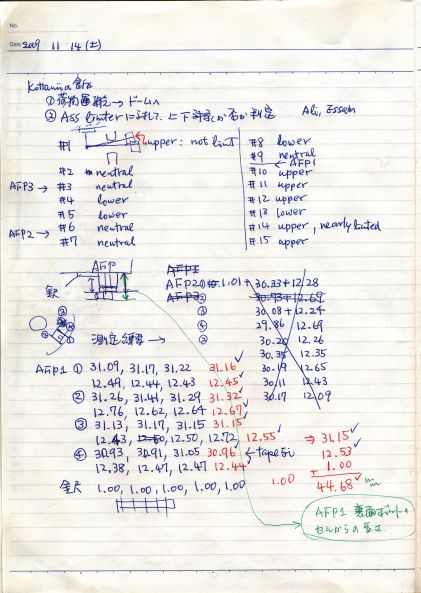 No.
Date 2009 . 11 . 14 (土)
① 荷物 → ドームへ
② 上下 判定 Ali, Essam
#1 upper : not limit
#2 neutral
AFP3 → #3 neutral
#4 lower
#5 lower
AFP2 → #6 neutral
#7 neutral
#8 lower
#9 neutral
← AFP1
#10 upper
#11 upper
#12 upper
#13 lower
#14 upper, nearly limited
#15 upper
AFP
金尺
AFP1
AFP2 ① 1.01 + 30.33 + 12.28
AFP3 ② 30.93 + 12.69
③ 30.08 + 12.24
④ 29.86 12.69
測定 練習 → ② 30.20 12.26
30.35 12.35
30.19 12.65
30.11 12.43
30.17 12.09
AFP1 ① 31.09, 31.17, 31.22 31.16
12.49, 12.44, 12.43 12.45
② 31.26, 31.41, 31.29 31.32
12.76, 12.62, 12.64 12.67
③ 31.13, 31.17, 31.15 31.15
12.43, 12.50, 12.72 12.55
④ 30.93, 30.91, 31.05 30.96 ← tape
12.38, 12.47, 12.47 12.44
⇒ 31.15
12.53
+ 1.00
44.68 mm
金尺 1.00, 1.00, 1.00, 1.00, 1.00 1.00
AFP1 裏面ボルトの
セルからの高さ